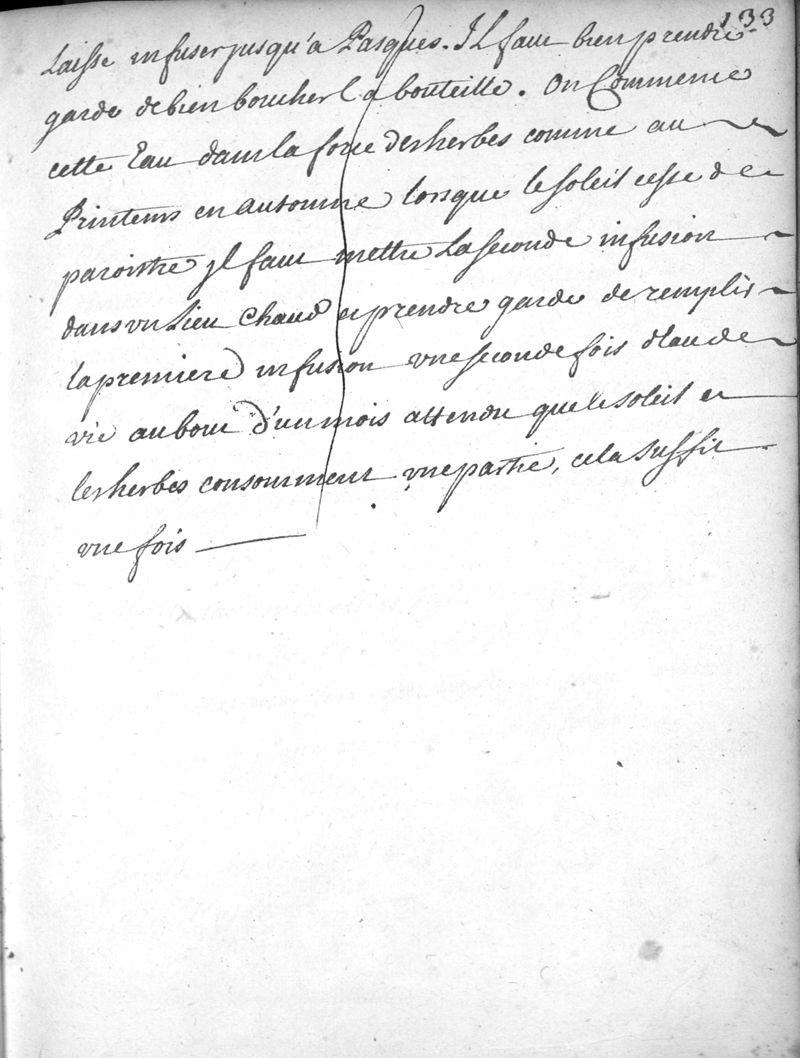 133
laisse infuser jusqu'a Pasques. Il faut bien prendre
garde de bien boucher la bouteille. On Commence
cette Eau dans la force des herbes comme au
Printems en automne lorsque le soleil cesse de
paroistre jl faut mettre la seconde infusion
dans vn Lieu Chaud et prendre garde de remplir
la premiere infusion vne seconde fois d'Eau de
vie au bout d'un mois attendu que le soleil et
les herbes consomment vne partie, cela suffit
vne fois